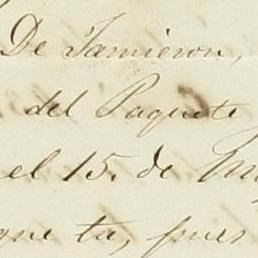 De Jamieson,
del Paquete
el 15. de
que tu, pues